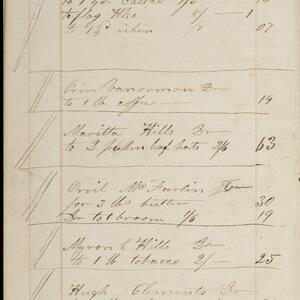 to 1 yd Calico 1/3
to flag Hks 8/- 1
to 14d ribin 1/8 07
Orin Vanorman Dr
to 1 lb coffee 19
Maritta Hills Dr
to 2 palm leaf hats 2/6 63
Orvil McFarlin Cr
for 3 lbs butter 30
Dr to 1 broom 1/6 19
Myron C Hills Dr
to 1 lb tobacco 2/- 25
Hugh Clements Dr